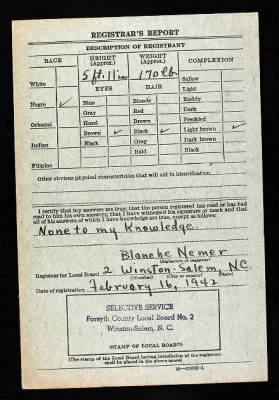 REGISTRAR'S REPORT
DESCRIPTION OF REGISTRANT
RACE HEIGHT (Approx.) WEIGHT (Approx.) COMPLEXION
5 ft. 11 in 170 lb.
White Sallow
EYES HAIR Light
Negro ✓ Blue Blonde Ruddy
Gray Red Dark
Oriental Hazel Brown Freckled
Brown ✓ Black ✓ Light brown ✓
Indian Black Gray Dark brown
Bald Black
Filipino
Other obvious physical characteristics that will aid in identification
I certify that my answers are true; that the person registered has read or has had
read to him his own answers; that I have witnessed his signature or mark and that
all of his answers of which I have knowledge are true, except as follows:
None to my Knowledge
Blanche Nemer
(Signature of registrar)
Registrar for Local Board 2 Winston-Salem, N.C.
(Number) (City or county) (State)
Date of registration February 16, 1942
SELECTIVE SERVICE
Forsyth County Local Board No. 2
Winston-Salem, N. C.
(STAMP OF LOCAL BOARD)
(The stamp of the Local Board having jurisdiction of the registrant
shall be placed in the above space)